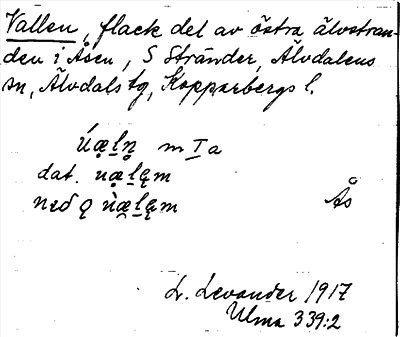 Vallen, flack del av östra älvstran-
den i Åsen, S Stränder, Älvdalens
sn, Älvdals tg, Kopparbergs l.
úæ̣ḷn̥ m I a
dat. uæ̣ḷą̈m
neð ǫ ùæ̣ḷą̈m Ås
L. Levander 1917
Ulma 339:2